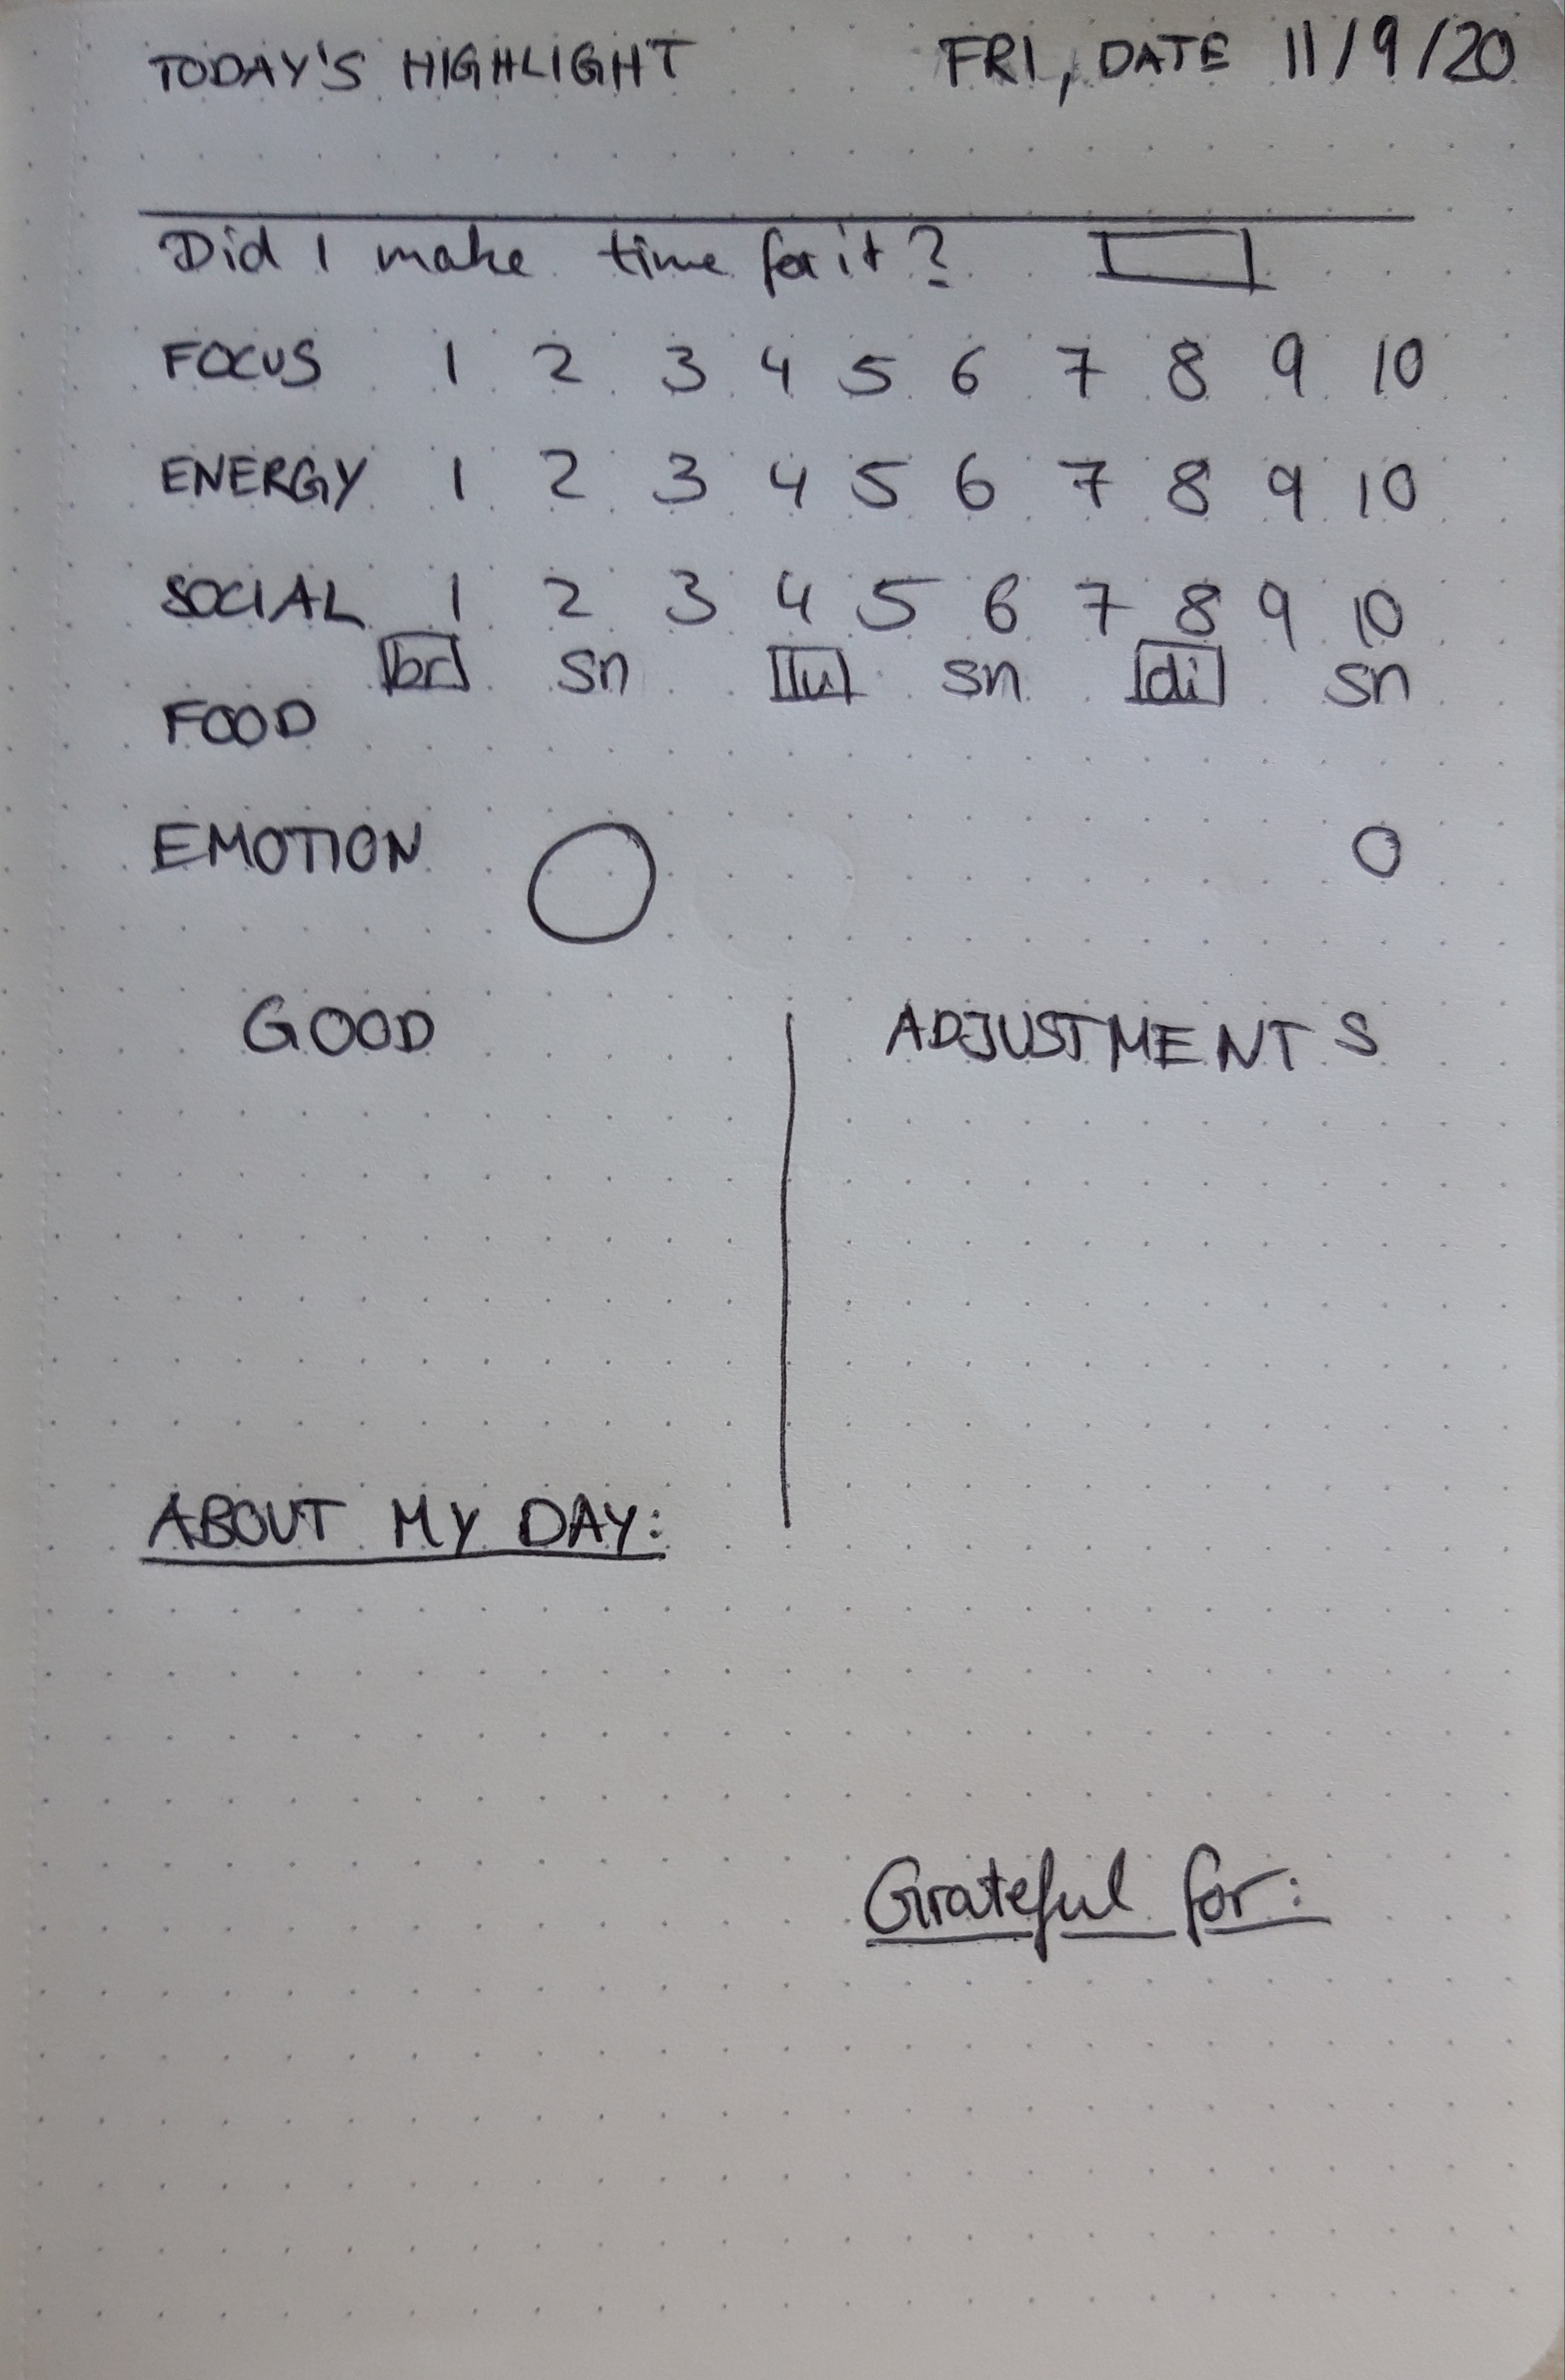 TODAY'S HIGHLIGHT FRI, DATE 11/9/20
Did I make time for it?
FOCUS 1 2 3 4 5 6 7 8 9 10
ENERGY 1 2 3 4 5 6 7 8 9 10
SOCIAL 1 2 3 4 5 6 7 8 9 10
br sn lu sn di sn
FOOD
EMOTION
GOOD ADJUSTMENTS
ABOUT MY DAY:
Grateful for: